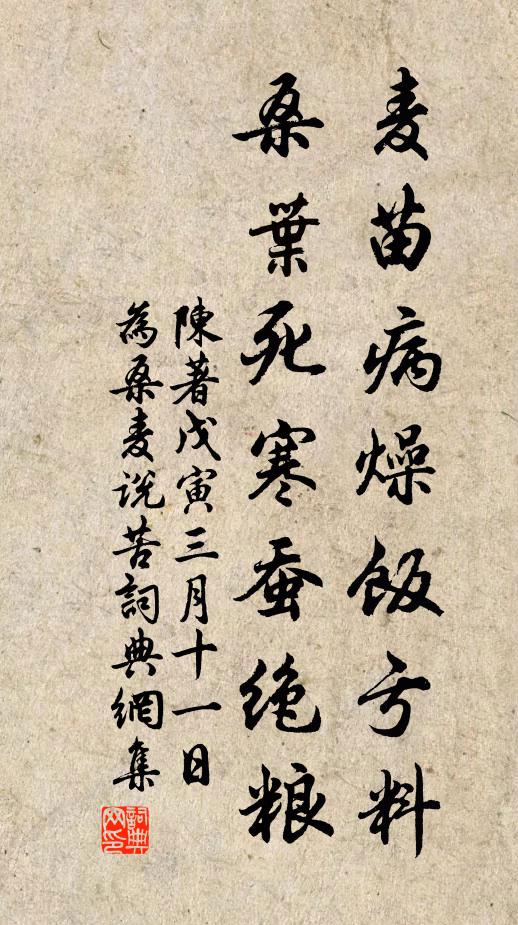 麦苗病燥飯亏料
桑葉死寒蚕绝粮
陳著戊寅三月十一日
為桑麦说苦詞典網集
詞典
网印